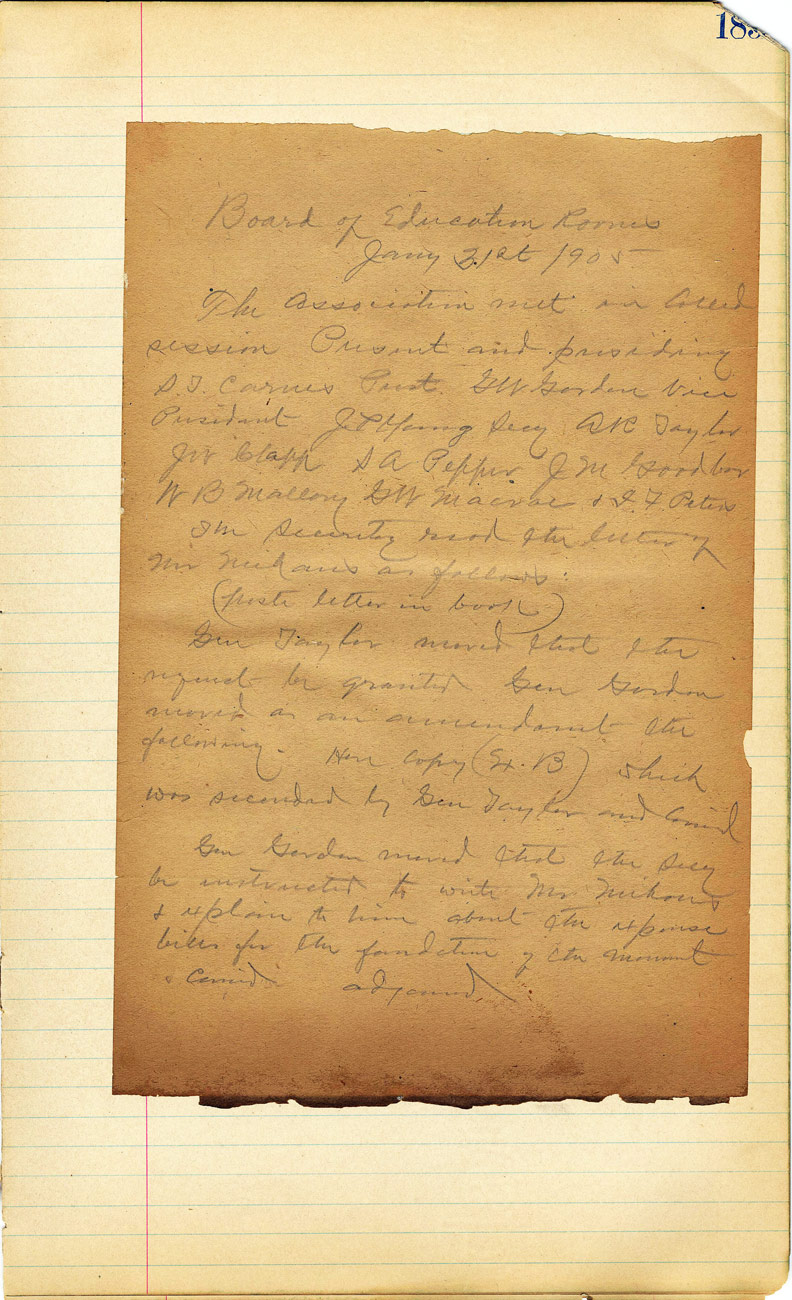 183
Board of Education Rooms
Jany 21st 1905
The Association met in called
session Present and presiding
S. T. Carnes Prest. GW Gordon Vice
President J P Young Secy A R Taylor
J W Clapp S A Pepper J M Goodbar
W B Mallory G W Macrae & I. F. Peters
The Secretary read the letter of
Mr Niehaus as follows:
(paste letter in book)
Gen Taylor moved that the
request be granted Gen Gordon
moved as an amendment the
following. Here copy (Ex. B) which
was seconded by Gen Taylor and Carried
Gen Gordon moved that the Secy
be instructed to write Mr Niehaus
& explain to him about the expense
bills for the foundation of the monument
& Carried adjourned